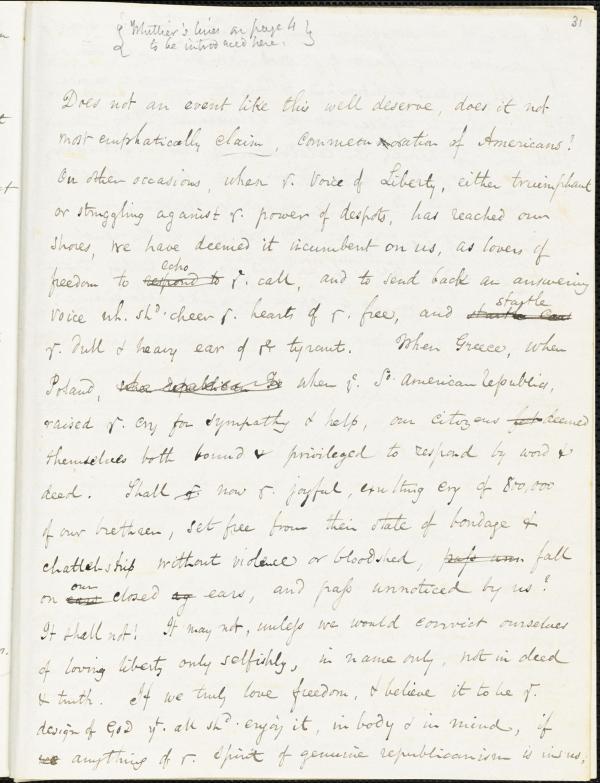 31
{Whittier's lines on page 4
to be introduced here.}
Does not an event like this well deserve, does it not
most emphatically claim, commemoration of Americans?
On other occasions, when ye. Voice of Liberty, either triumphant
or struggling against ye. power of despots, has reached our
shores, we have deemed it incumbent on us, as lovers of
echo
freedom to respond to ye. call, and to send back an answering
startle
voice wh. shd. cheer ye. hearts of ye. free, and
ye. dull & heavy ear of ye tyrant. When Greece, when
Poland, when ye. So. American Republics,
raised ye. cry for sympathy & help, our citizens felt deemed
themselves both bound & privileged to respond by word &
deed. Shall now ye. joyful, exulting cry of 800,000
of our brethren, set free from their state of bondage &
chattelship without violence or bloodshed, pass unn fall
our
on ears closed ears, and pass unnoticed by us?
It shall not! It may not, unless we would convict ourselves
of loving liberty only selfishly, in name only, not in deed
& truth. If we truly love freedom, & believe it to be ye.
design of God yt. all shd. enjoy it, in body & in mind, if
we anything of ye. spirit of genuine republicanism is in us,